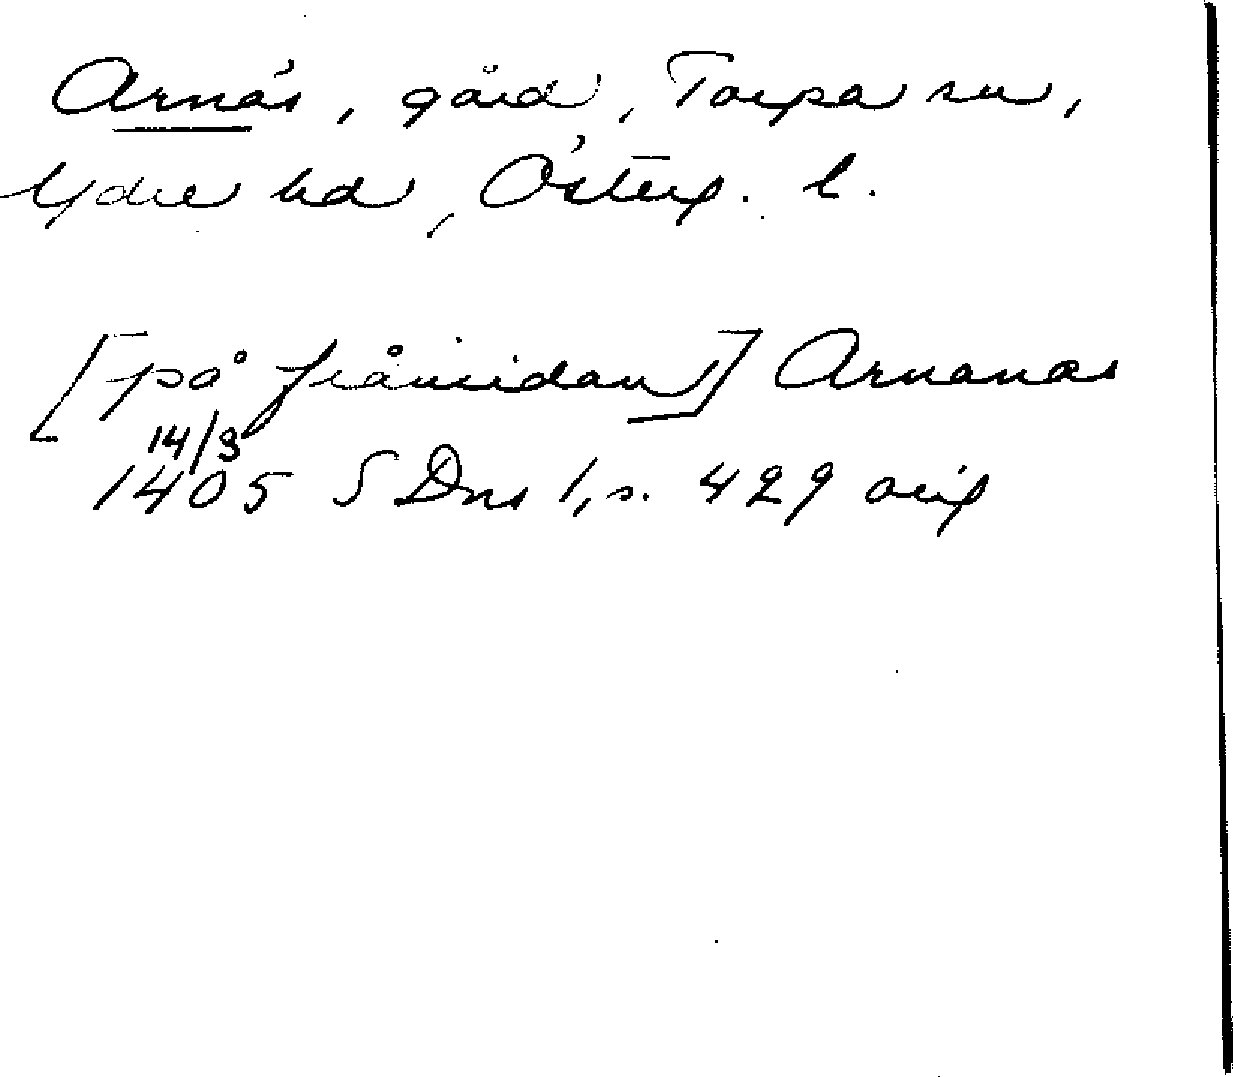 Arnäs, gård, Torpa sn,
Ydre hd, Österg. l.
[på frånsidan] Arnanæs
14/3
1405 SDns 1, s. 429 orig